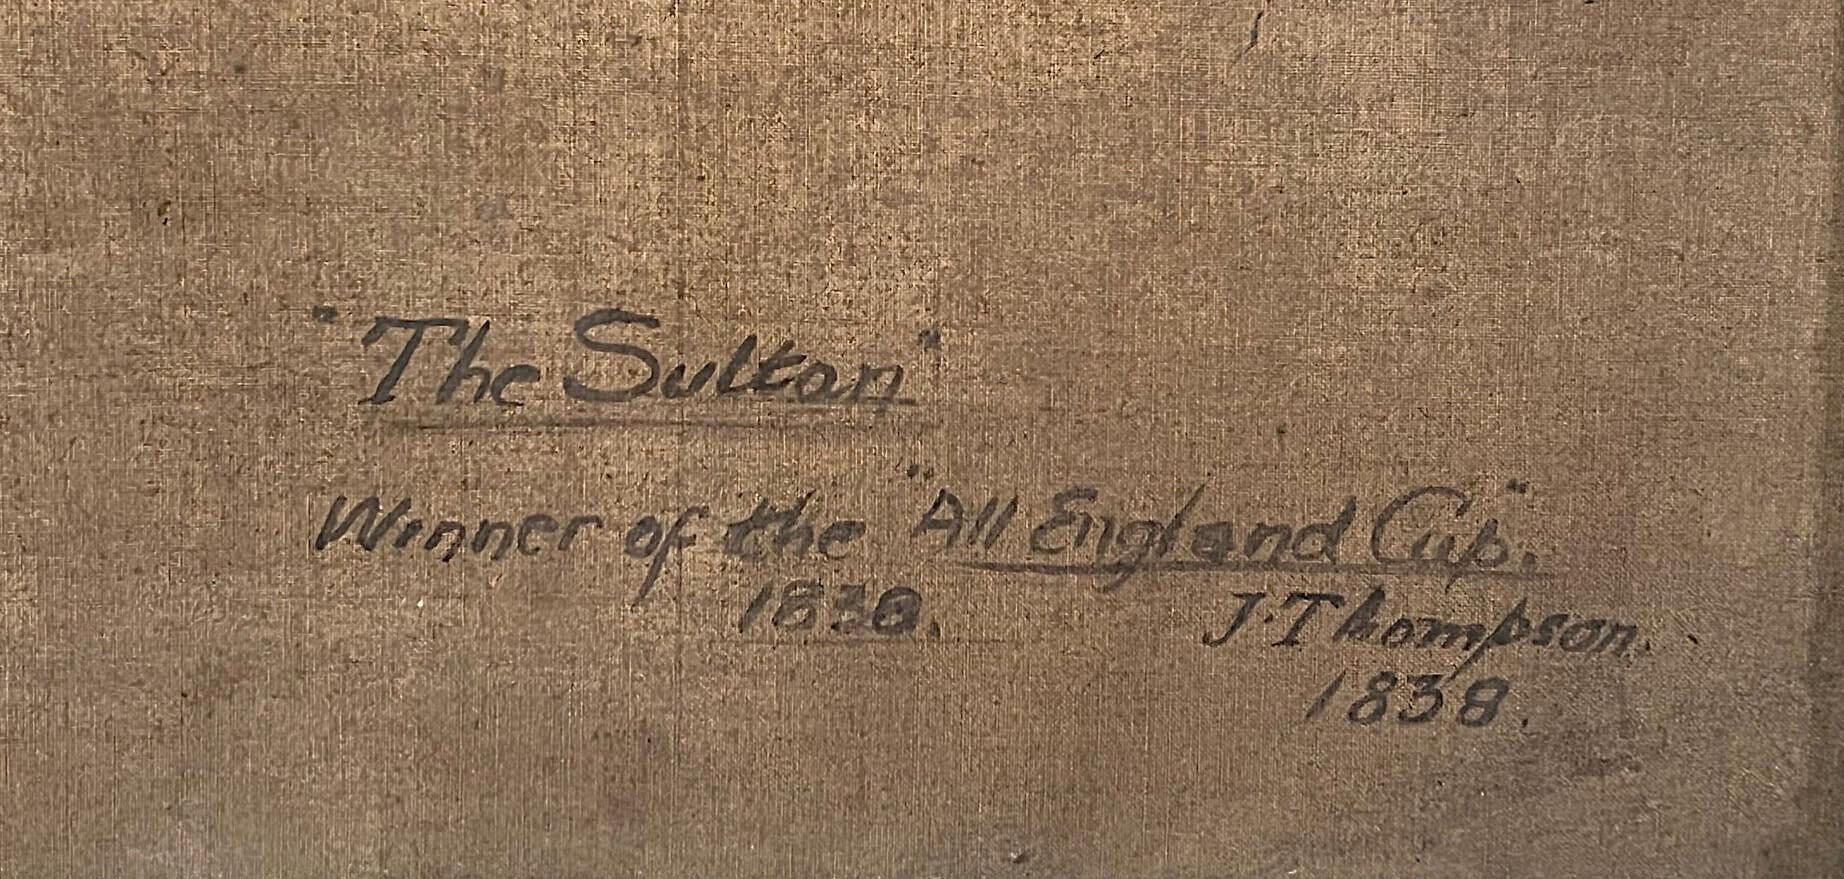 "The Sultan"
Winner of the "All England Cup".
1838. J. Thompson.
1838.